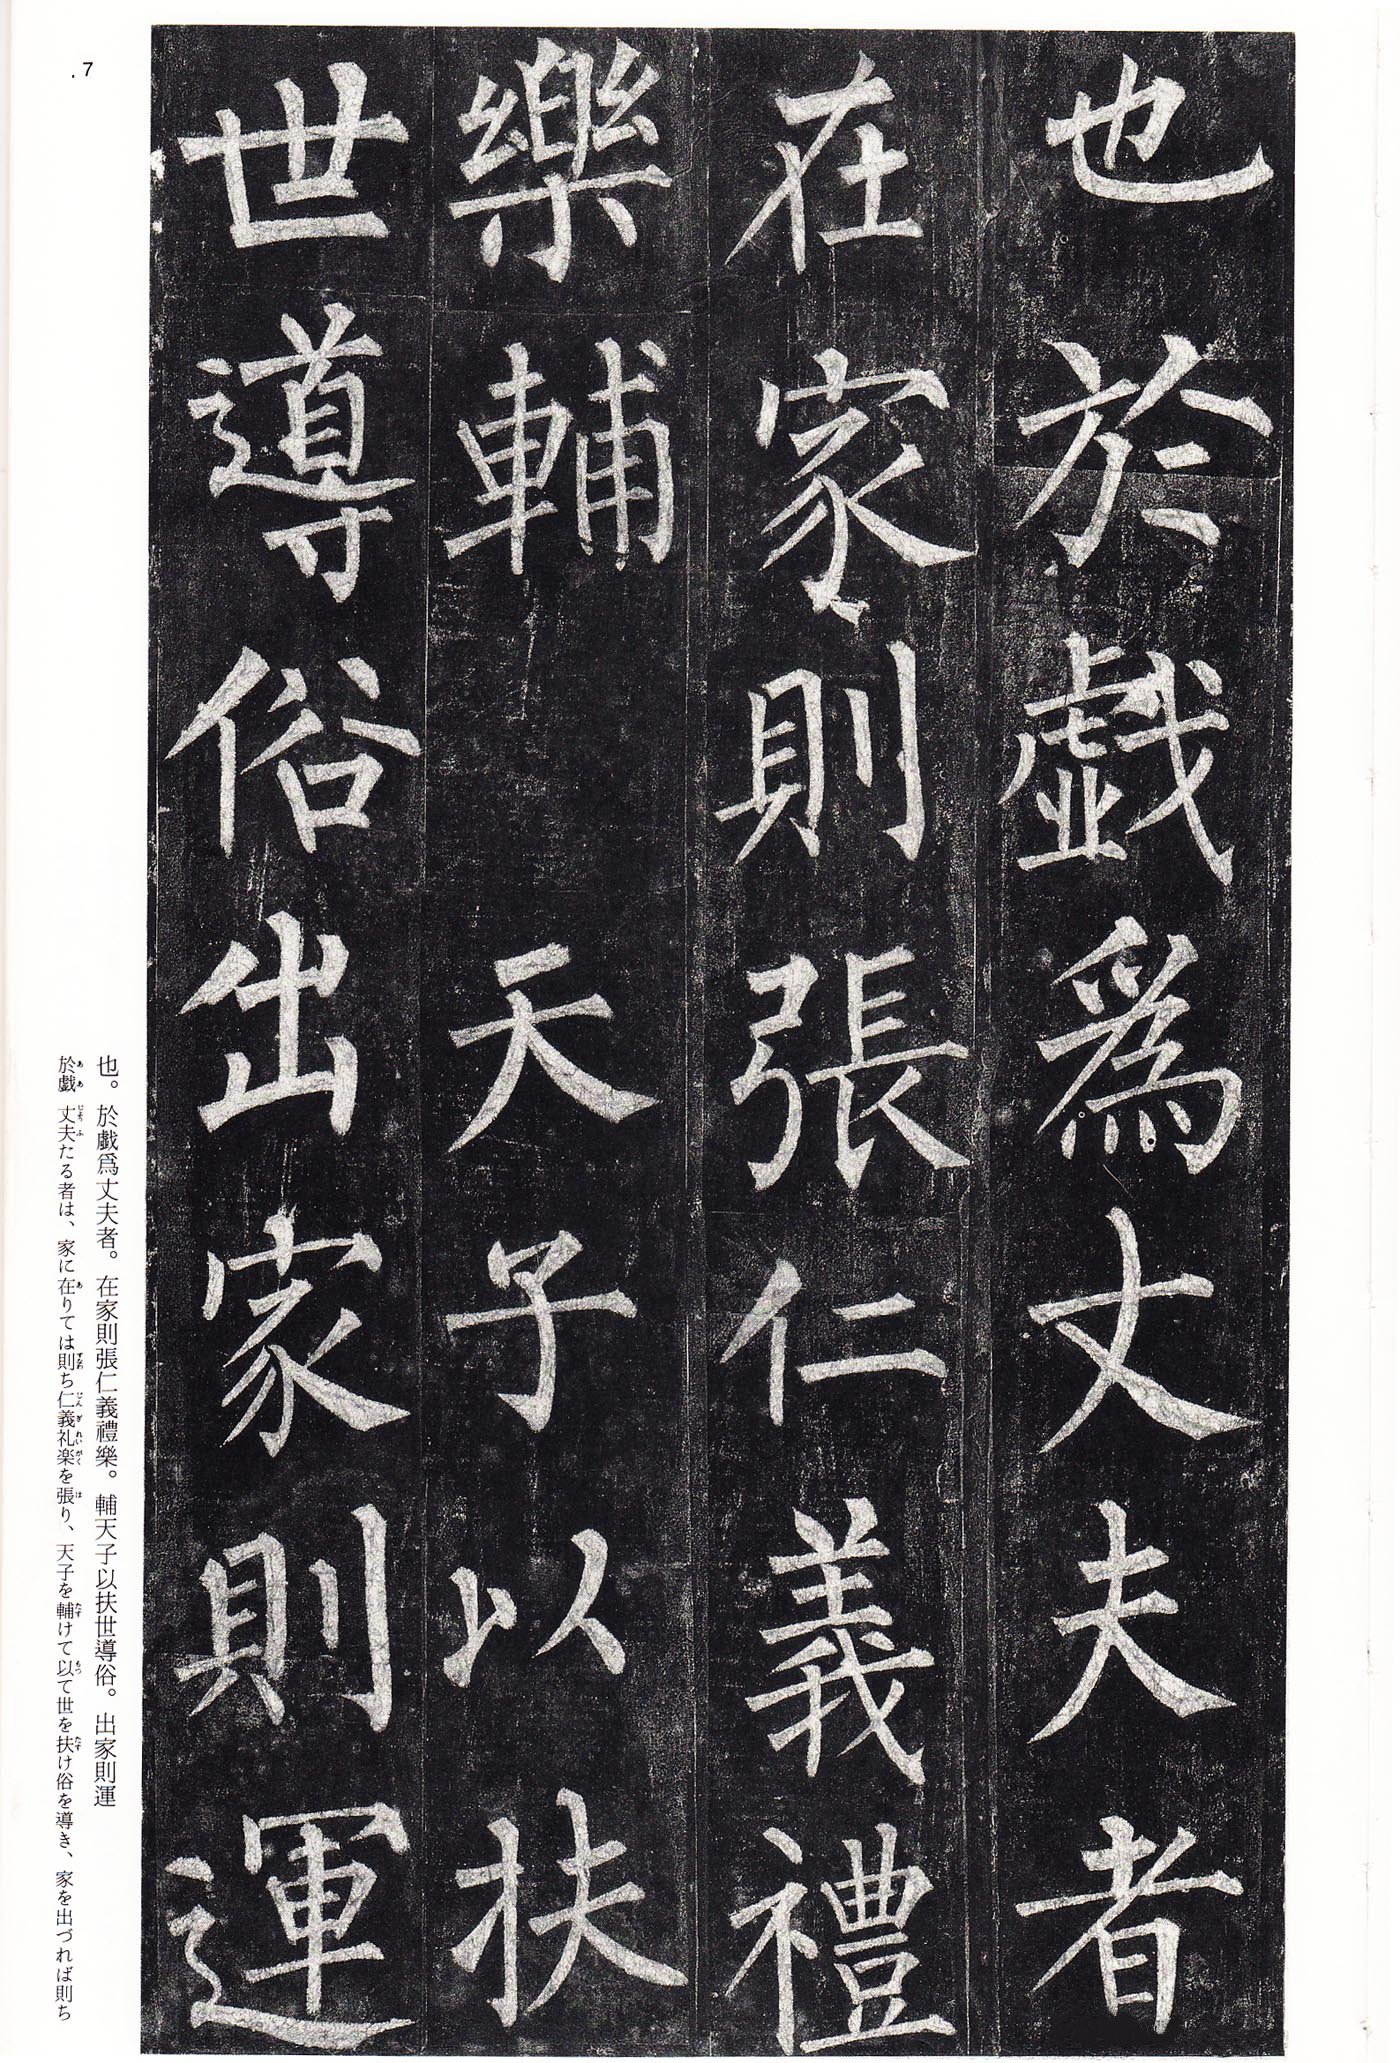 也於戯爲丈夫者
在家則張仁義禮
樂輔天子以扶
世導俗出家則運
也。於戯爲丈夫者。在家則張仁義禮樂。輔天子以扶世導俗。出家則運
於戯丈夫たる者は、家に在りては則ち仁義礼楽を張り、天子を輔けて以て世を扶け俗を導き、家を出づれば則ち
.7